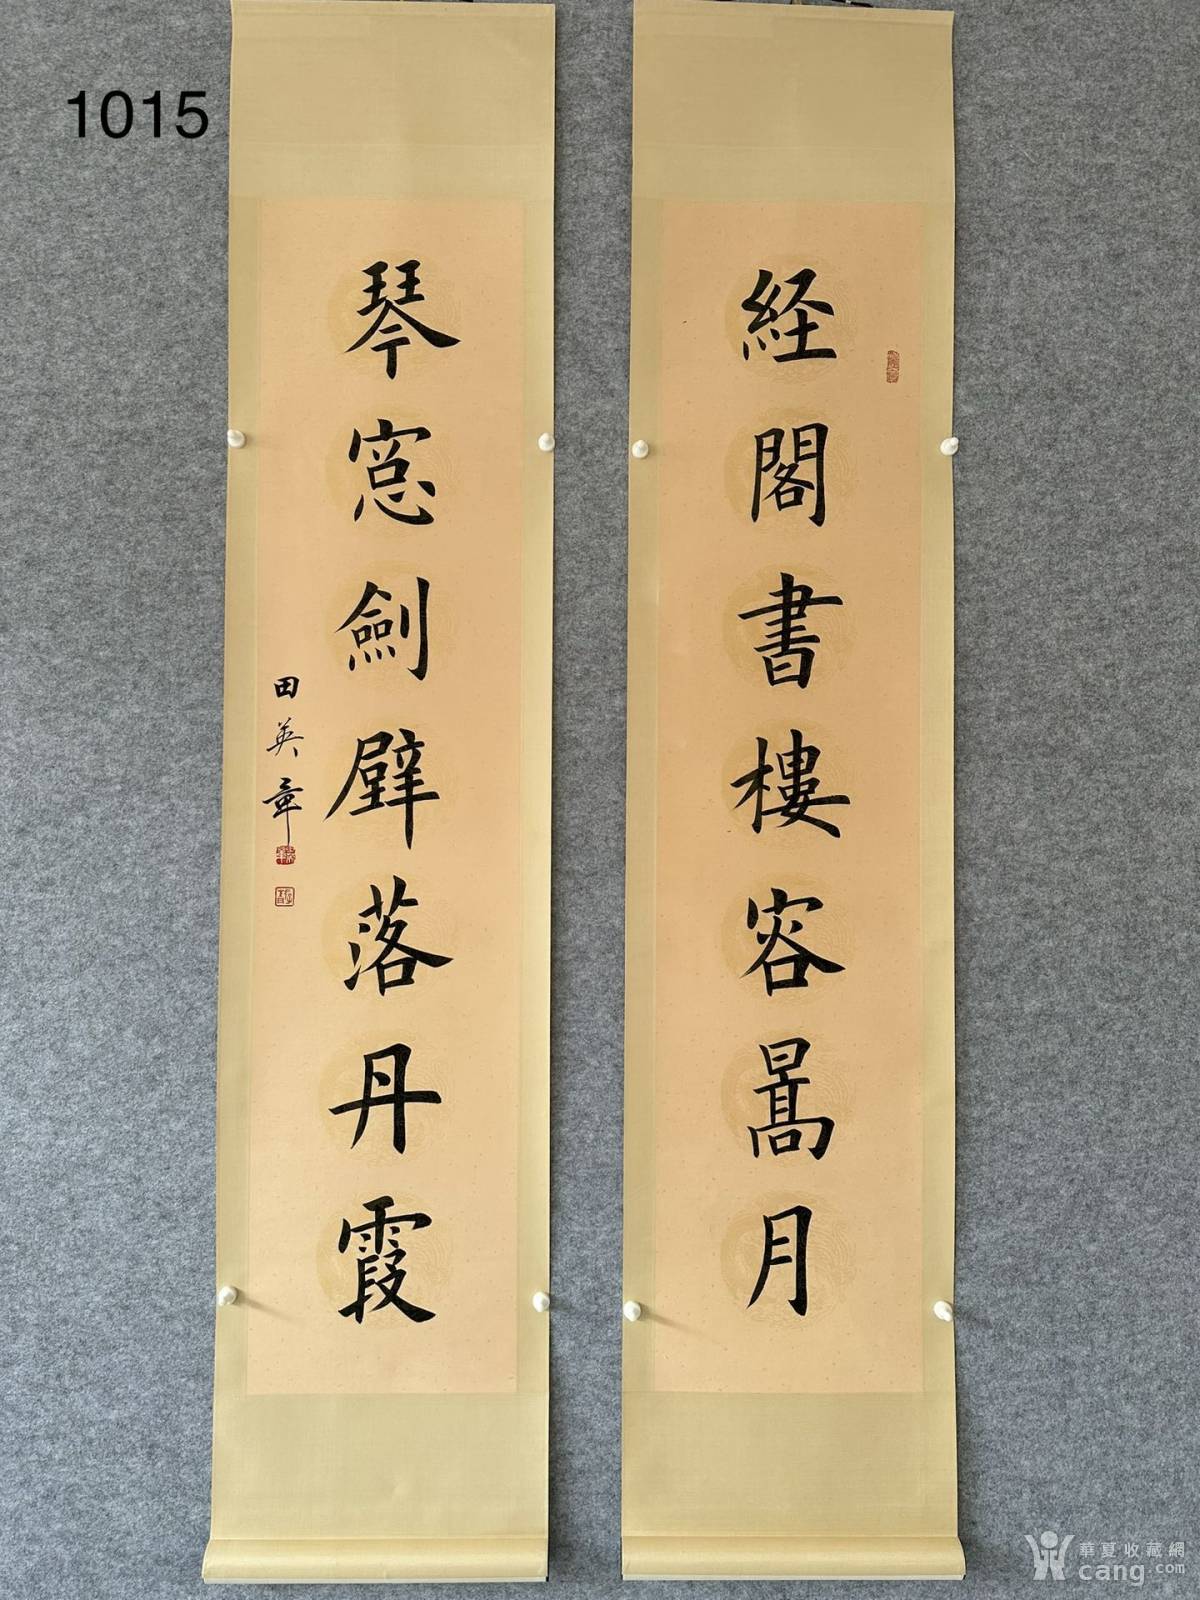 1015
経閣書樓容暠月
琴窓劍壁落丹霞
田英章
華夏收藏網
cang.com